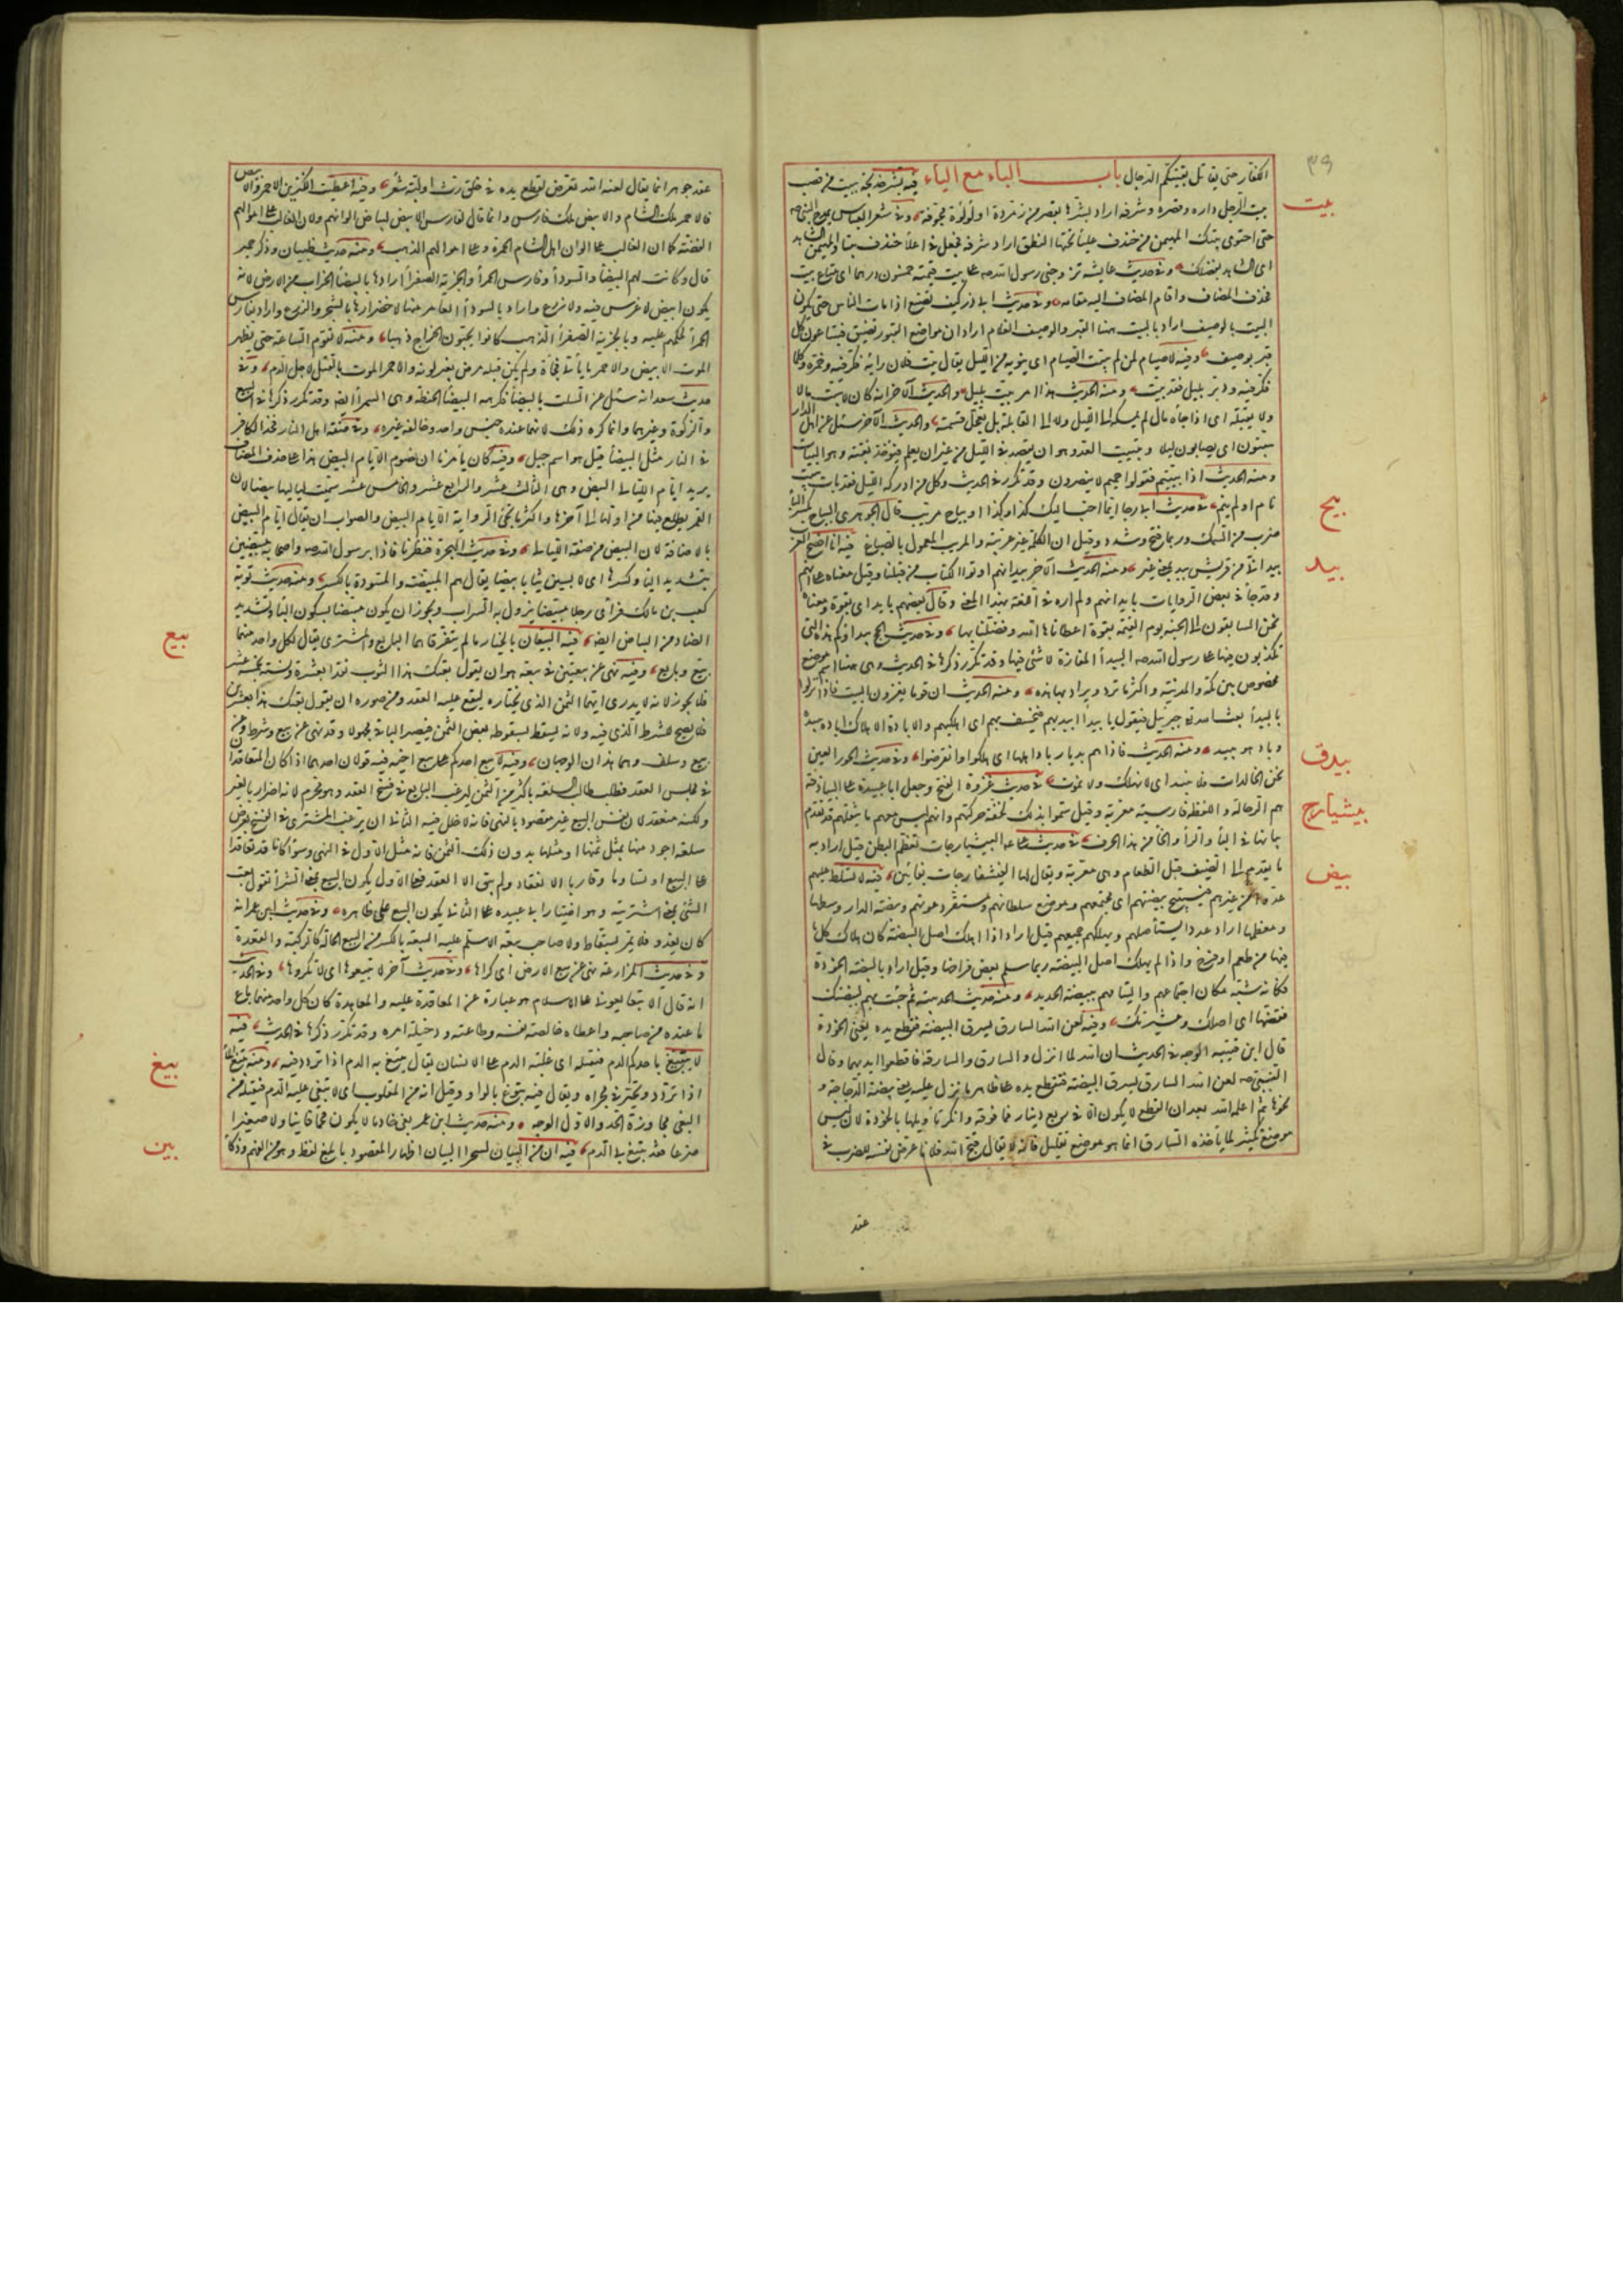 ٣٩
الكفار حتى يقاتل بقيتكم الدجال باب الباء مع الياء فيه بشر خديجة ببيت من قصب
بيت
بيت الرجل داره وقصره وشرفه اراد بشرها بقصر من زمردة او لؤلؤة مجوفة وفي شعر العباس يمدح النبي صه
حتى احتوى بيتك المهيمن من خندف علياء تحتها النطق اراد شرفه فجعل في اعلا خندف بيتا والمهيمن الشاهد
اى الشاهد بفضلك وفي حديث عايشه تزوجني رسول الله صه على بيت قيمته خمسون درهما اى متاع بيت
فحذف المضاف واقام المضاف اليه مقامه وفي حديث ابى ذر كيف تصنع اذا مات الناس حتى يكون
البيت بالوصيف اراد بالبيت هنا القبر والوصيف الغلام اراد ان مواضع القبور تضيق فيبتاعون كل
قبر بوصيف وفيه لا صيام لمن لم يبت الصيام اى ينويه من الليل يقال بيت فلان رايه اذا فكر فيه وخمره وكلما
فكر فيه ودبر بليل فقد بيت ومنه الحديث هذا امر بيت بليل والحديث الآخر انه كان لا يبيت مالا
ولا يقيله اى اذا جاءه مال لم يمسكه الى الليل ولا الى القايلة بل يعجل قسمته والحديث الآخر سئل عن اهل الدار
يبيتون اى يصابون ليلا وتبييت العدو هو ان يقصد في الليل من غير ان يعلم فيؤخذ بغتة وهو البيات
ومنه الحديث اذا بيتم فقولوا حم لا ينصرون وقد تكرر في الحديث وكل من ادركه الليل فقد بات يبيت
بيح
نام او لم ينم في حديث ابى رجا ايما احب اليك كذا وكذا او بياح مربب قال الجوهرى البياح بكسر الباء
ضرب من السمك وربما فتح وشدد وقيل ان الكلمة غير عربية والمربب المعمول بالصباغ فيه انا افصح العرب
بيد
بيد انى من قريش بيد بمعنى غير ومنه الحديث الآخر بيد انهم اوتوا الكتاب من قبلنا وقيل معناه على انهم
وقد جاء في بعض الروايات بايد انهم ولم اره في اللغة بهذا المعنى وقال بعضهم بايد اى بقوة ومعناه
نحن السابقون الى الجنة يوم القيمة بقوة اعطاناها الله وفضلنا بها وفي حديث الحج بيداؤكم هذه التى
تكذبون فيها على رسول الله صه البيداء المفازة لا شئ فيها وقد تكرر ذكرها في الحديث وهى هنا اسم موضع
مخصوص بين مكة والمدينة واكثر ما ترد ويراد بها هذه ومنه الحديث ان قوما يغزون البيت فاذا نزلوا
بالبيداء بعث الله جبريل فيقول يا بيداء ابيديهم فيخسف بهم اى اهلكيهم والابادة الاهلاك اباده يبيده
بيدق
وباد هو يبيد ومنه الحديث فاذا هم بديار باد اهلها اى هلكوا وانقرضوا وفي حديث الحور العين
نحن الخالدات فلا نبيد اى لا نهلك ولا نموت في حديث غزوة الفتح وجعل ابا عبيدة على البياذقة
بيشيارج
هم الرجالة واللفظة فارسية معربة وقيل سموا بذلك لخفة حركتهم وانهم ليس معهم ما يثقلهم قد تقدم
بيانها في الباء والراء والخاء من هذا الحرف في حديث على عه البيشيارجات تعظم البطن قيل اراد به
بيض
ما يقدم الى الضيف قبل الطعام وهى معربة ويقال لها الفيشفارجات بفائين فيه لا تسلط عليهم
عدوا من غيرهم فيستبيح بيضتهم اى مجتمعهم وموضع سلطانهم ومستقر دعوتهم وبيضة الدار وسطها
ومعظمها اراد عدوا يستأصلهم ويهلكهم جميعهم قيل اراد اذا اهلك اصل البيضة كان هلاك كل ما
فيها من طعم او فرخ واذا لم يهلك اصل البيضة ربما سلم بعض فراخها وقيل اراد بالبيضة الخوذة
فكانه شبه مكان اجتماعهم والتيامهم ببيضة الحديد ومنه حديث الحديبية ثم جئت بهم لبيضتك
تفتضها اى اصلك وعشيرتك وفيه لعن الله السارق يسرق البيضة فتقطع يده يعنى الخوذة
قال ابن قتيبة الوجه في الحديث ان الله لما انزل والسارق والسارقة فاقطعوا ايديهما وقال
النبي صه لعن الله السارق يسرق البيضة فتقطع يده على ظاهر ما نزل عليه يعنى بيضة الدجاجة و
نحوها ثم اعلمه الله بعد ان القطع لا يكون الا في ربع دينار فما فوقه وانكر تأويلها بالخوذة لان ليس
موضع تكثير لما يأخذه السارق انما هو موضع تقليل فانه لا يقال قبح الله فلانا عرض نفسه للضرب في
عقد
عقد جوهر انما يقال لعنه الله تعرض لقطع يده في خلق رث او كبة شعر وفيه اعطيت الكنزين الاحمر والابيض
فالاحمر ملك الشام والابيض ملك فارس وانما قال لفارس الابيض لبياض الوانهم ولان الغالب على اموالهم
الفضة كما ان الغالب على الوان اهل الشام الحمرة وعلى اموالهم الذهب ومنه حديث ظبيان وذكر حمير
قال وكانت لهم البيضاء والسوداء وفارس الحمراء والجزية الصفراء اراد بالبيضاء الخراب من الارض لانه
يكون ابيض لا غرس فيه ولا زرع واراد بالسوداء العامر منها لاخضرارها بالشجر والزرع واراد بفارس
الحمراء تحكمهم عليه وبالجزية الصفراء الذهب كانوا يجبون الخراج ذهبا ومنه لا تقوم الساعة حتى يظهر
الموت الابيض والاحمر الابيض ما يأتى فجأة ولم يكن قبله مرض يغير لونه والاحمر الموت بالقتل لاجل الدم وفي
حديث سعد انه سئل عن السلت بالبيضاء فكرهه البيضاء الحنطة وهى السمراء ايضا وقد تكرر ذكرها في البيع
والزكوة وغيرهما وانما كره ذلك لانهما عنده جنس واحد وخالفه غيره وفي صفة اهل النار فخذ الكافر
في النار مثل البيضاء قيل هو اسم جبل وفيه كان يامرنا ان نصوم الايام البيض هذا على حذف المضاف
يريد ايام الليالى البيض وهى الثالث عشر والرابع عشر والخامس عشر سميت لياليها بيضا لان
القمر يطلع فيها من اولها الى آخرها واكثر ما تجئ الرواية الايام البيض والصواب ان يقال ايام البيض
بالاضافة لان البيض من صفة الليالى وفي حديث الهجرة فنظرنا فاذا برسول الله صه واصحابه مبيضين
بتشديد الياء وكسرها اى لابسين ثيابا بيضا يقال هم المبيضة والمسودة بالكسر ومنه حديث توبة
كعب بن مالك فرأى رجلا مبيضا يزول به السراب ويجوز ان يكون مبيضا بسكون الباء وتشديد
بيع
الضاد من البياض ايضا فيه البيعان بالخيار ما لم يتفرقا هما البايع والمشترى يقال لكل واحد منهما
بيع وبايع وفيه نهى عن بيعتين في بيعة هو ان يقول بعتك هذا الثوب نقدا بعشرة ونسئة بخمسة عشر
فلا يجوز لانه لا يدرى ايهما الثمن الذى يختاره ليقع عليه العقد ومن صوره ان يقول بعتك هذا بعشرين
فلا يصح للشرط الذى فيه ولانه يسقط بسقوطه بعض الثمن فيصير الباقى مجهولا وقد نهى عن بيع وشرط وعن
بيع وسلف وهما هذان الوجهان وفيه لا يبيع احدكم على بيع اخيه فيه قولان احدهما اذا كان المتعاقدان
في مجلس العقد فطلب طالب السلعة باكثر من الثمن ليرغب البايع في فسخ العقد وهو محرم لانه اضرار بالغير
ولكنه منعقد لان نفس البيع غير مقصود بالنهى فانه لا خلل فيه الثانى ان يرغب المشترى في الفسخ بعرض
سلعة اجود منها بمثل ثمنها او مثلها بدون ذلك الثمن فانه مثل الاول في النهى وسواء كانا قد تعاقدا
على البيع او تساوما وقاربا الانعقاد ولم يبق الا العقد فعلى الاول يكون البيع بمعنى الشراء تقول بعت
الشئ بمعنى اشتريته وهو اختيار ابى عبيده على الثانى يكون البيع على ظاهره وفي حديث ابن عمر انه
كان يغدو فلا يمر بسقاط ولا صاحب بيعة الا سلم عليه البيعة بالكسر من البيع الحالة كالركبة والقعدة
وفي حديث المزارعة نهى عن بيع الارض اى كراها وفي حديث آخر لا تبيعوها اى لا تكروها وفي الحديث
انه قال الا تبايعونى على الاسلام هو عبارة عن المعاقدة عليه والمعاهدة كان كل واحد منهما باع
ما عنده من صاحبه واعطاه خالصة نفسه وطاعته ودخيلة امره وقد تكرر ذكرها في الحديث فيه
بيغ
لا يتبيغ باحدكم الدم فيقتله اى غلبة الدم على الانسان يقال تبيغ به الدم اذا تردد فيه ومنه تبيغ الماء
اذا تردد وتحير في مجراه ويقال فيه تبوغ بالواو وقيل انه من المقلوب اى لا يبغى عليه الدم فيقتله من
البغى مجاوزة الحد والاول الوجه ومنه حديث ابن عمر ابغنى خادما لا يكون قحما فانيا ولا صغيرا
بين
ضرعا فقد تبيغ بى الدم فيه ان من البيان لسحرا البيان اظهار المقصود بابلغ لفظ وهو من الفهم وذكاء